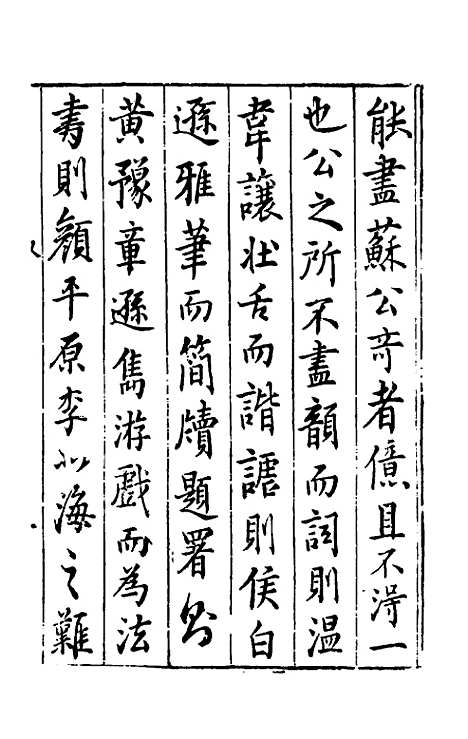 能盡蘇公奇者億且不得一
也公之所不盡韻而詞則溫
韋讓壯舌而諧謔則侯白
遜雅筆而簡牘題署則
黃豫章遜雋游戲而為法
書則顏平原李北海之難